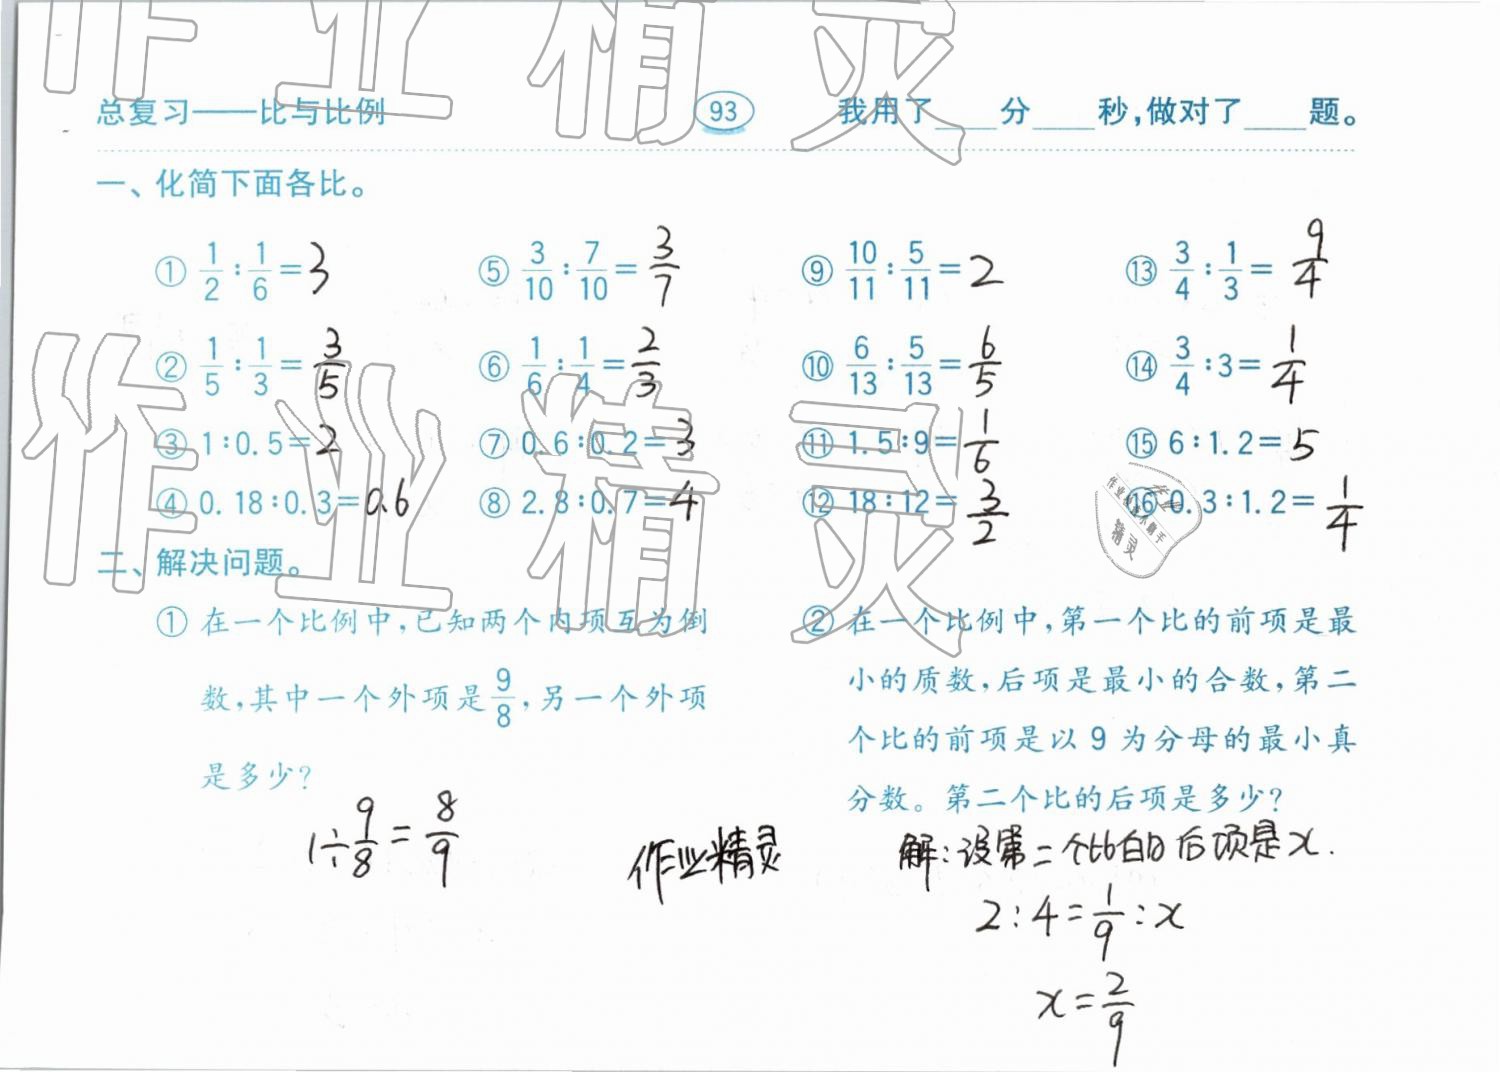 作业精灵
总复习——比与比例 93 我用了____分____秒,做对了____题。
一、化简下面各比。
① 1/2:1/6=3 ⑤ 3/10:7/10=3/7 ⑨ 10/11:5/11=2 ⑬ 3/4:1/3=9/4
② 1/5:1/3=3/5 ⑥ 1/6:1/4=2/3 ⑩ 6/13:5/13=6/5 ⑭ 3/4:3=1/4
③ 1:0.5=2 ⑦ 0.6:0.2=3 ⑪ 1.5:9=1/6 ⑮ 6:1.2=5
④ 0.18:0.3=0.6 ⑧ 2.8:0.7=4 ⑫ 18:12=3/2 ⑯ 0.3:1.2=1/4
作业精灵
二、解决问题。
① 在一个比例中,已知两个内项互为倒
数,其中一个外项是9/8,另一个外项
是多少?
1÷9/8=8/9
作业精灵
② 在一个比例中,第一个比的前项是最
小的质数,后项是最小的合数,第二
个比的前项是以9为分母的最小真
分数。第二个比的后项是多少?
解:设第二个比的后项是x.
2:4=1/9:x
x=2/9